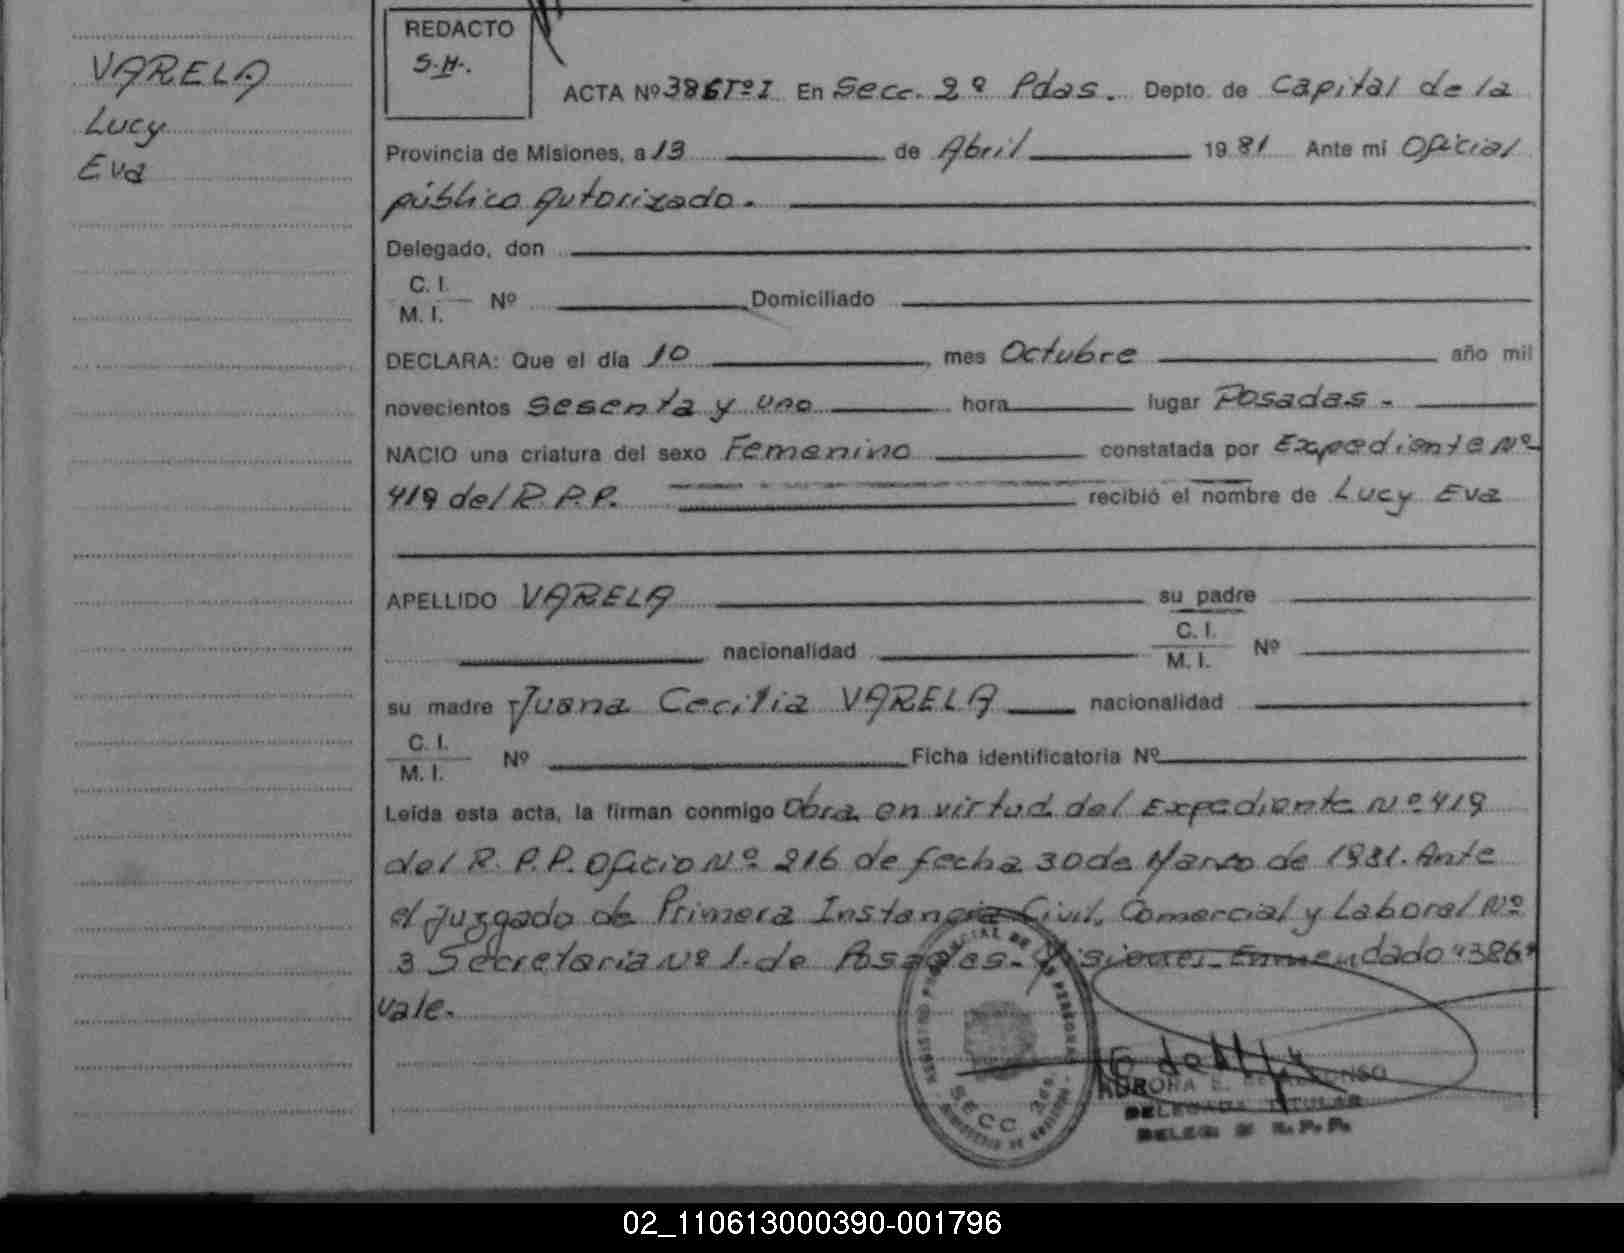 VARELA
Lucy
Eva
REDACTO
S.H.
ACTA Nº 386 Tº I En Secc. 2º Pdas. Depto. de Capital de la
Provincia de Misiones, a 13 de Abril 1981 Ante mi Oficial
público Autorizado.
Delegado, don
C. I.
M. I. Nº Domiciliado
DECLARA: Que el día 10, mes Octubre año mil
novecientos Sesenta y uno hora lugar Posadas.
NACIO una criatura del sexo Femenino constatada por Expediente Nº
419 del R.P.P. recibió el nombre de Lucy Eva
APELLIDO VARELA su padre
nacionalidad C. I.
M. I. Nº
su madre Juana Cecilia VARELA nacionalidad
C. I.
M. I. Nº Ficha identificatoria Nº
Leída esta acta, la firman conmigo Obra en virtud del Expediente Nº 419
del R. P.P. Oficio Nº 216 de fecha 30 de Marzo de 1981. Ante
el Juzgado de Primera Instancia Civil, Comercial y Laboral Nº
3 Secretaria Nº 1. de Posadas - Misiones. Enmendado "386"
vale.
REGISTRO PROVINCIAL DE LAS PERSONAS
SECC. 2da.
MINISTERIO DE GOBIERNO
AURORA E.
DELEGADA TITULAR
DELEG. R.P.P.
02_110613000390-001796